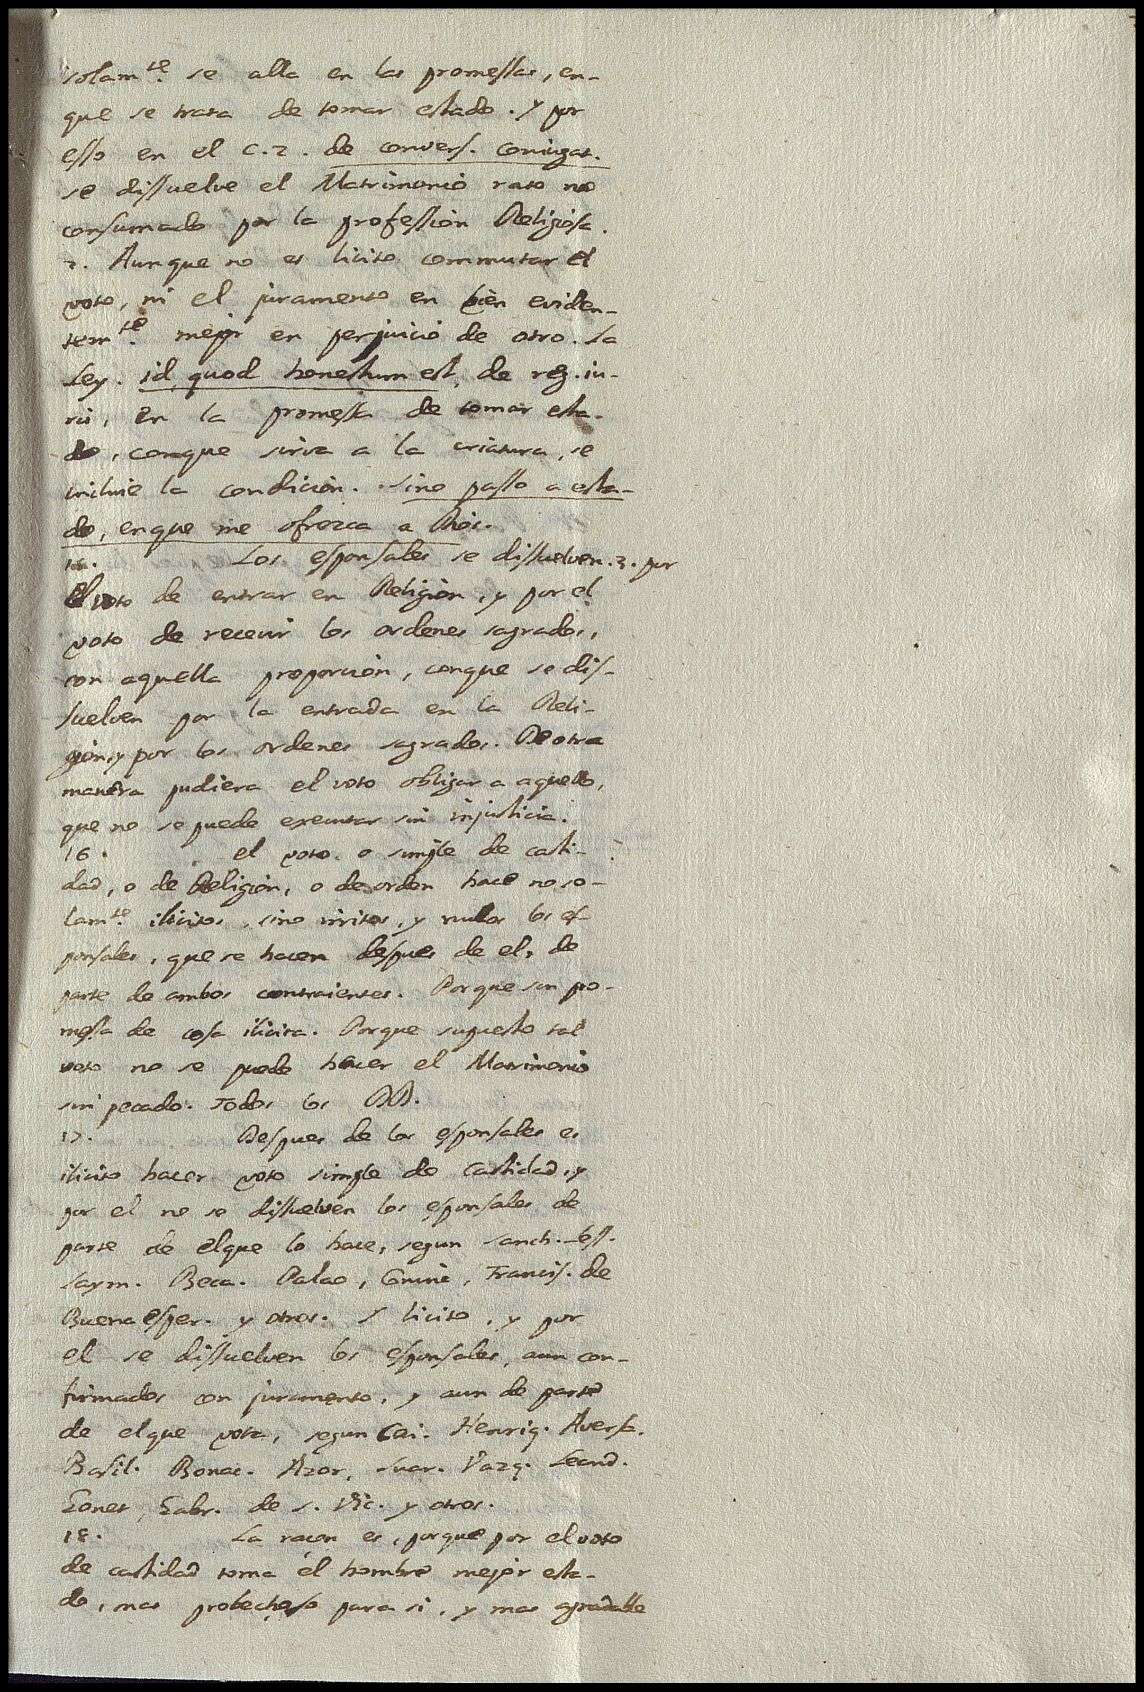 solam.te se alla en las promessas, en-
que se trata de tomar estado. y por
esso en el c. 2. de convers. coniugat.
se dissuelve el Matrimonio rato no
consumado por la profession Religiosa.
2. Aunque no es licito commutar el
voto, ni el juramento en bien eviden-
tem.te mejor en perjuicio de otro. la
Ley. id quod honestum est, de reg. iu-
ris, en la promessa de tomar esta-
do, conque sirva a la criatura, se
incluie la condicion. sino passo a esta-
do, enque me ofrezca a Dios.
Los esponsales se dissuelven. 3. por
el voto de entrar en Religion, y por el
voto de recevir los ordenes sagrados,
con aquella proporcion, conque se dis-
suelven por la entrada en la Reli-
gion, y por los ordenes sagrados. De otra
manera pudiera el voto obligar a aquello,
que no se puede executar sin injusticia.
16. el voto. o simple de casti-
dad, o de Religion, o de orden hace no so-
lam.te ilicitos, sino irritos, y nulos los es-
ponsales, que se hacen despues de el, de
parte de ambos contraientes. Porque son pro-
messa de cosa ilicita. Porque supuesto tal
voto no se puede hacer el Matrimonio
sin pecado. todos los DD.
17. Despues de los esponsales es
ilicito hacer voto simple de Castidad, y
por el no se dissuelven los esponsales de
parte de elque lo hace, segun Sanch. Less.
Laym. Beca. Palao, Coninc, Francis. de
Buena esper. y otros. Es licito, y por
el se dissuelven los esponsales, aun con-
firmados con juramento, y aun de parte
de elque vota, segun Cai. Henriq. Aversa.
Basil. Bonac. Azor, Suar. Vazq. Leand.
Gonet, Gabr. de S. Vic. y otros.
18. La racon es, porque por el voto
de castidad toma el hombre mejor esta-
do, mas probechoso para si, y mas agradable